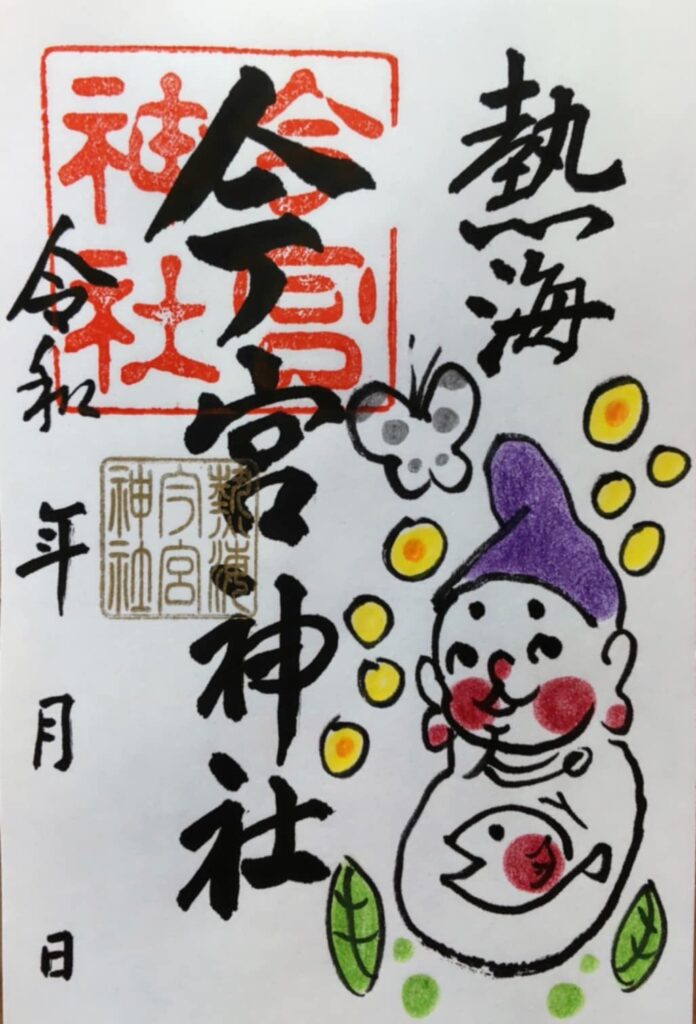 熱海
今宮神社
今宮
神社
熱海
今宮
神社
令和 年 月 日